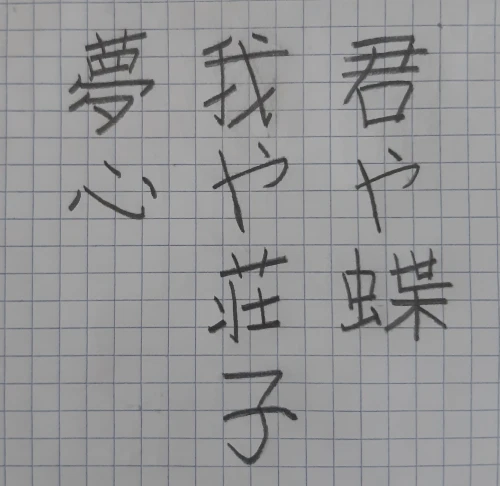 君や蝶
我や荘子
夢心